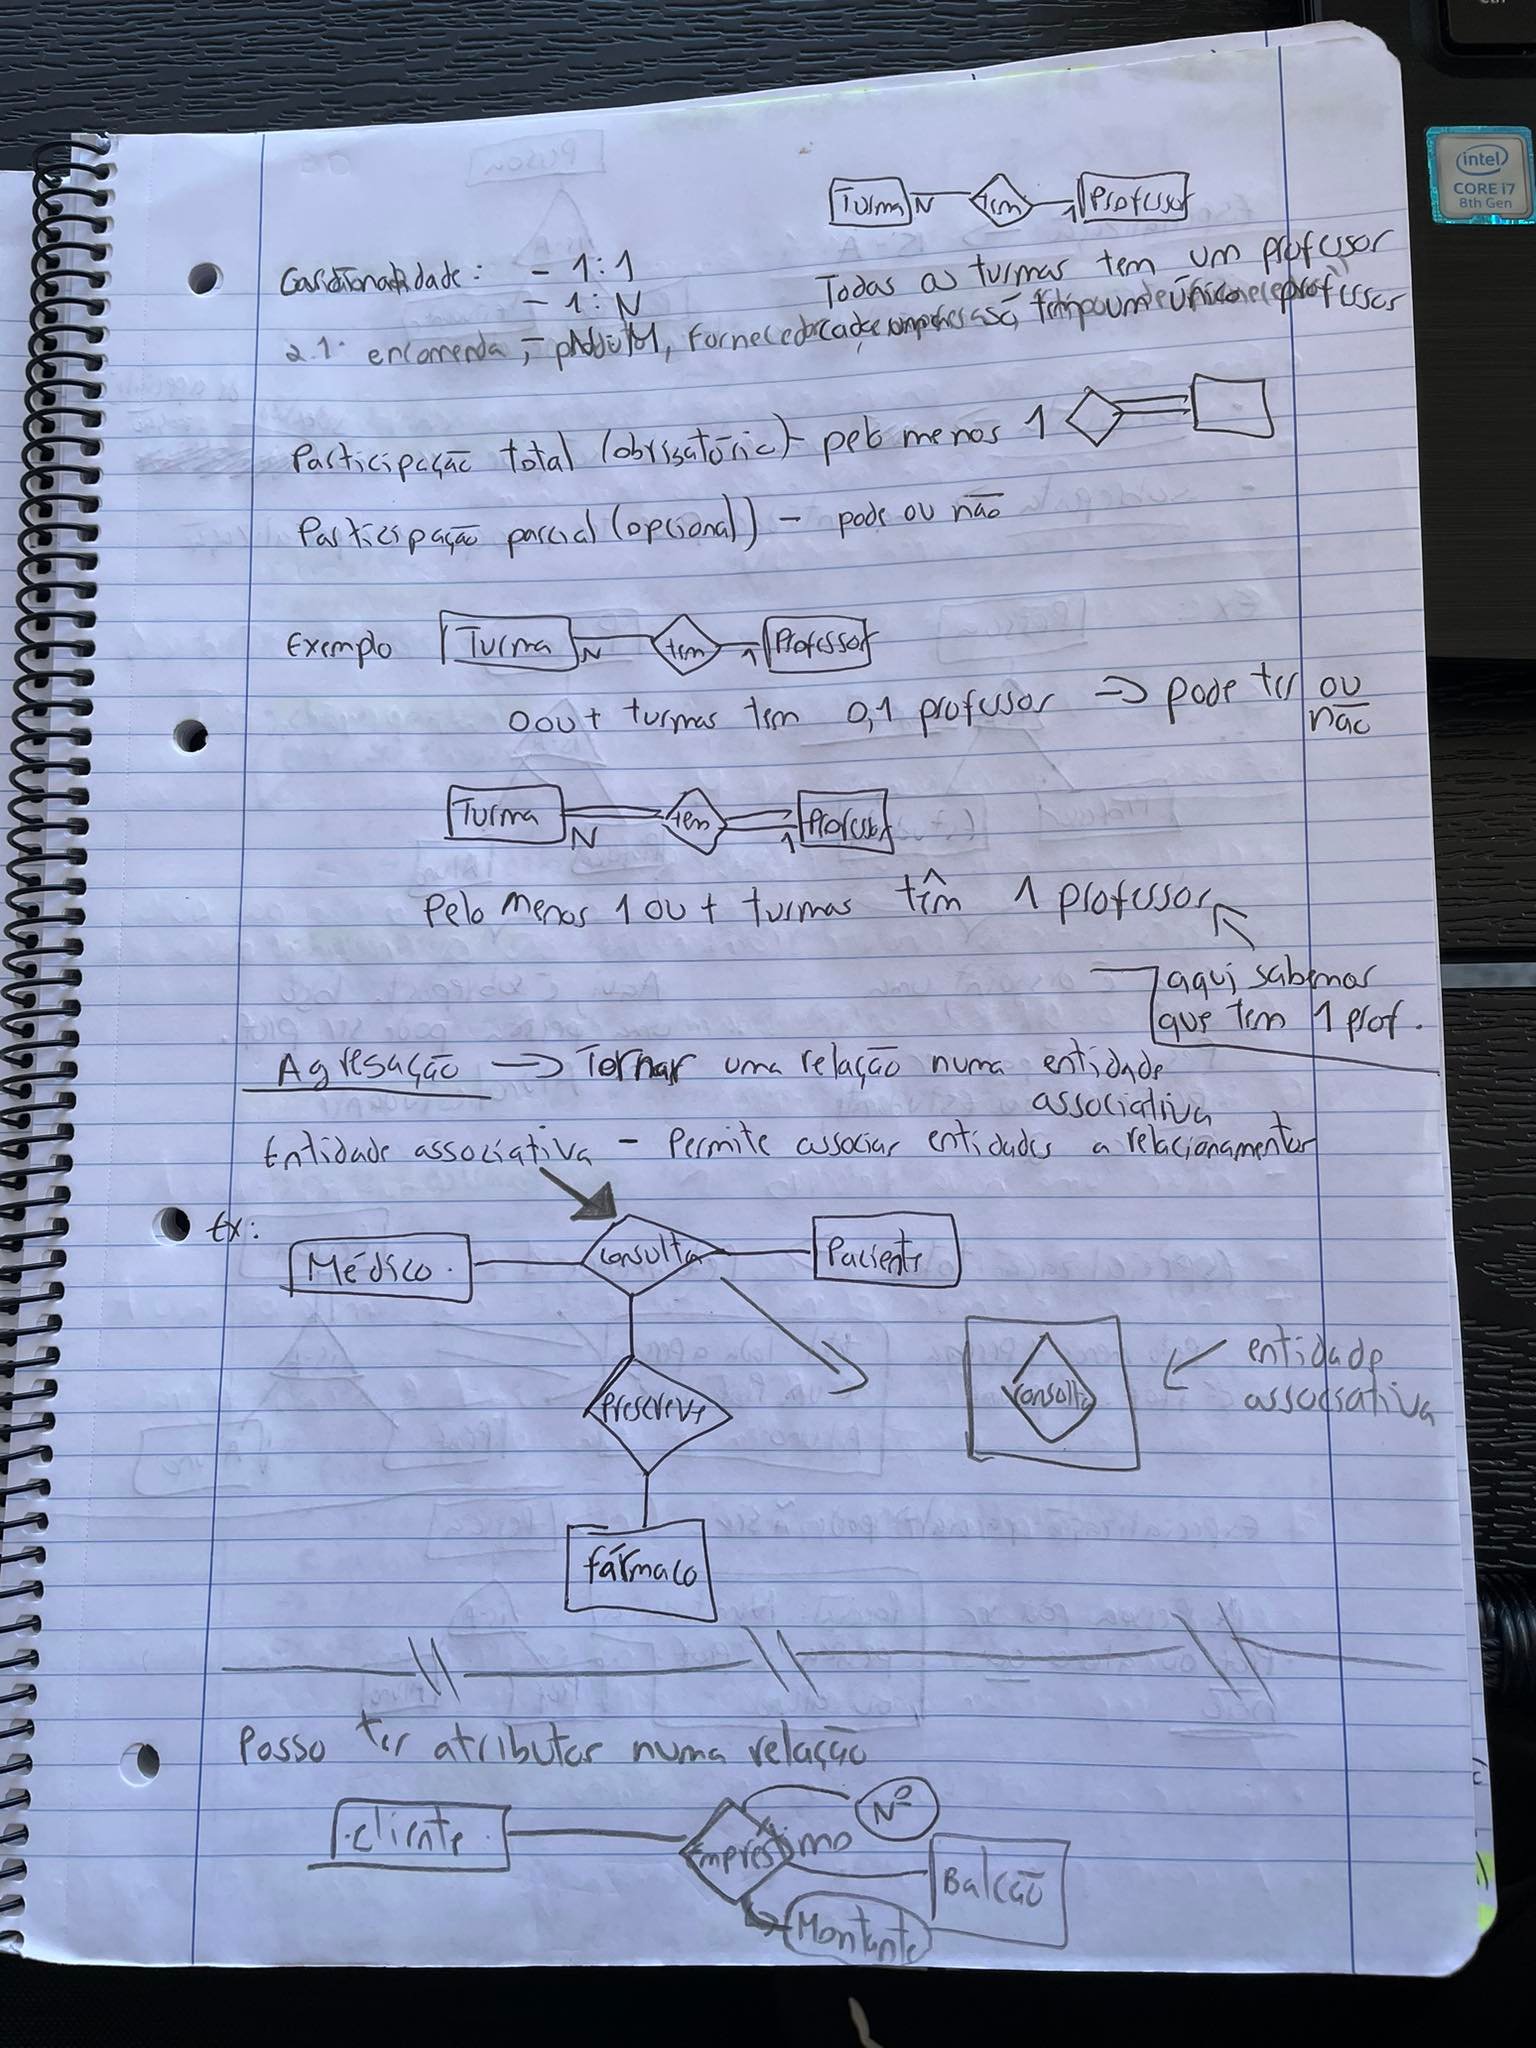 intel
CORE i7
8th Gen
Turma N tem 1 Professor
Cardionalidade: - 1:1
- 1:N
Todas as turmas tem um professor
2.1. encomenda,
Participação total (obrigatória) - pelo menos 1
Participação parcial (opcional) - pode ou não
Exemplo Turma N tem 1 Professor
0 ou + turmas tem 0,1 professor => pode ter ou
não
Turma N tem 1 Professor
Pelo menos 1 ou + turmas têm 1 professor
aqui sabemos
que tem 1 prof.
Agregação -> Tornar uma relação numa entidade
associativa
Entidade associativa - Permite associar entidades a relacionamentos
Ex:
Médico consulta Paciente
prescreve
consulta
entidade
associativa
fármaco
Posso ter atributos numa relação
Cliente Empréstimo Nº
Balcão
Montante